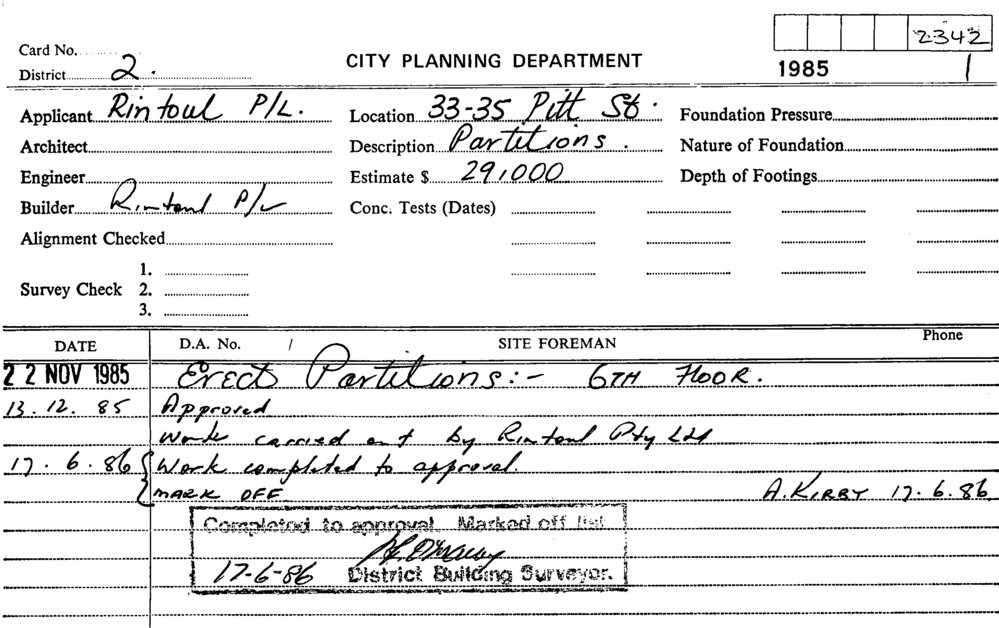 2342
Card No.
District 2.
CITY PLANNING DEPARTMENT
1985 1
Applicant Rintoul P/L. Location 33-35 Pitt St. Foundation Pressure
Architect Description Partitions. Nature of Foundation
Engineer Estimate $ 291,000 Depth of Footings
Builder Rintoul P/L Conc. Tests (Dates)
Alignment Checked
1.
Survey Check 2.
3.
DATE D.A. No. / SITE FOREMAN Phone
22 NOV 1985 Erect Partitions:- 6TH FLOOR.
13.12.85 Approved
Work carried out by Rintoul Pty Ltd
17.6.86 Work completed to approval.
MARK OFF A. KIRBY 17.6.86
Completed to approval. Marked off list
17-6-86 District Building Surveyor.